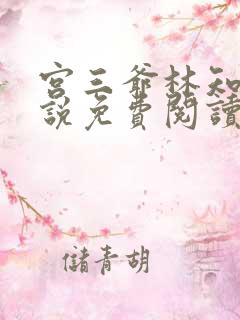 宫三爺林知
說免費閱讀
儲青胡